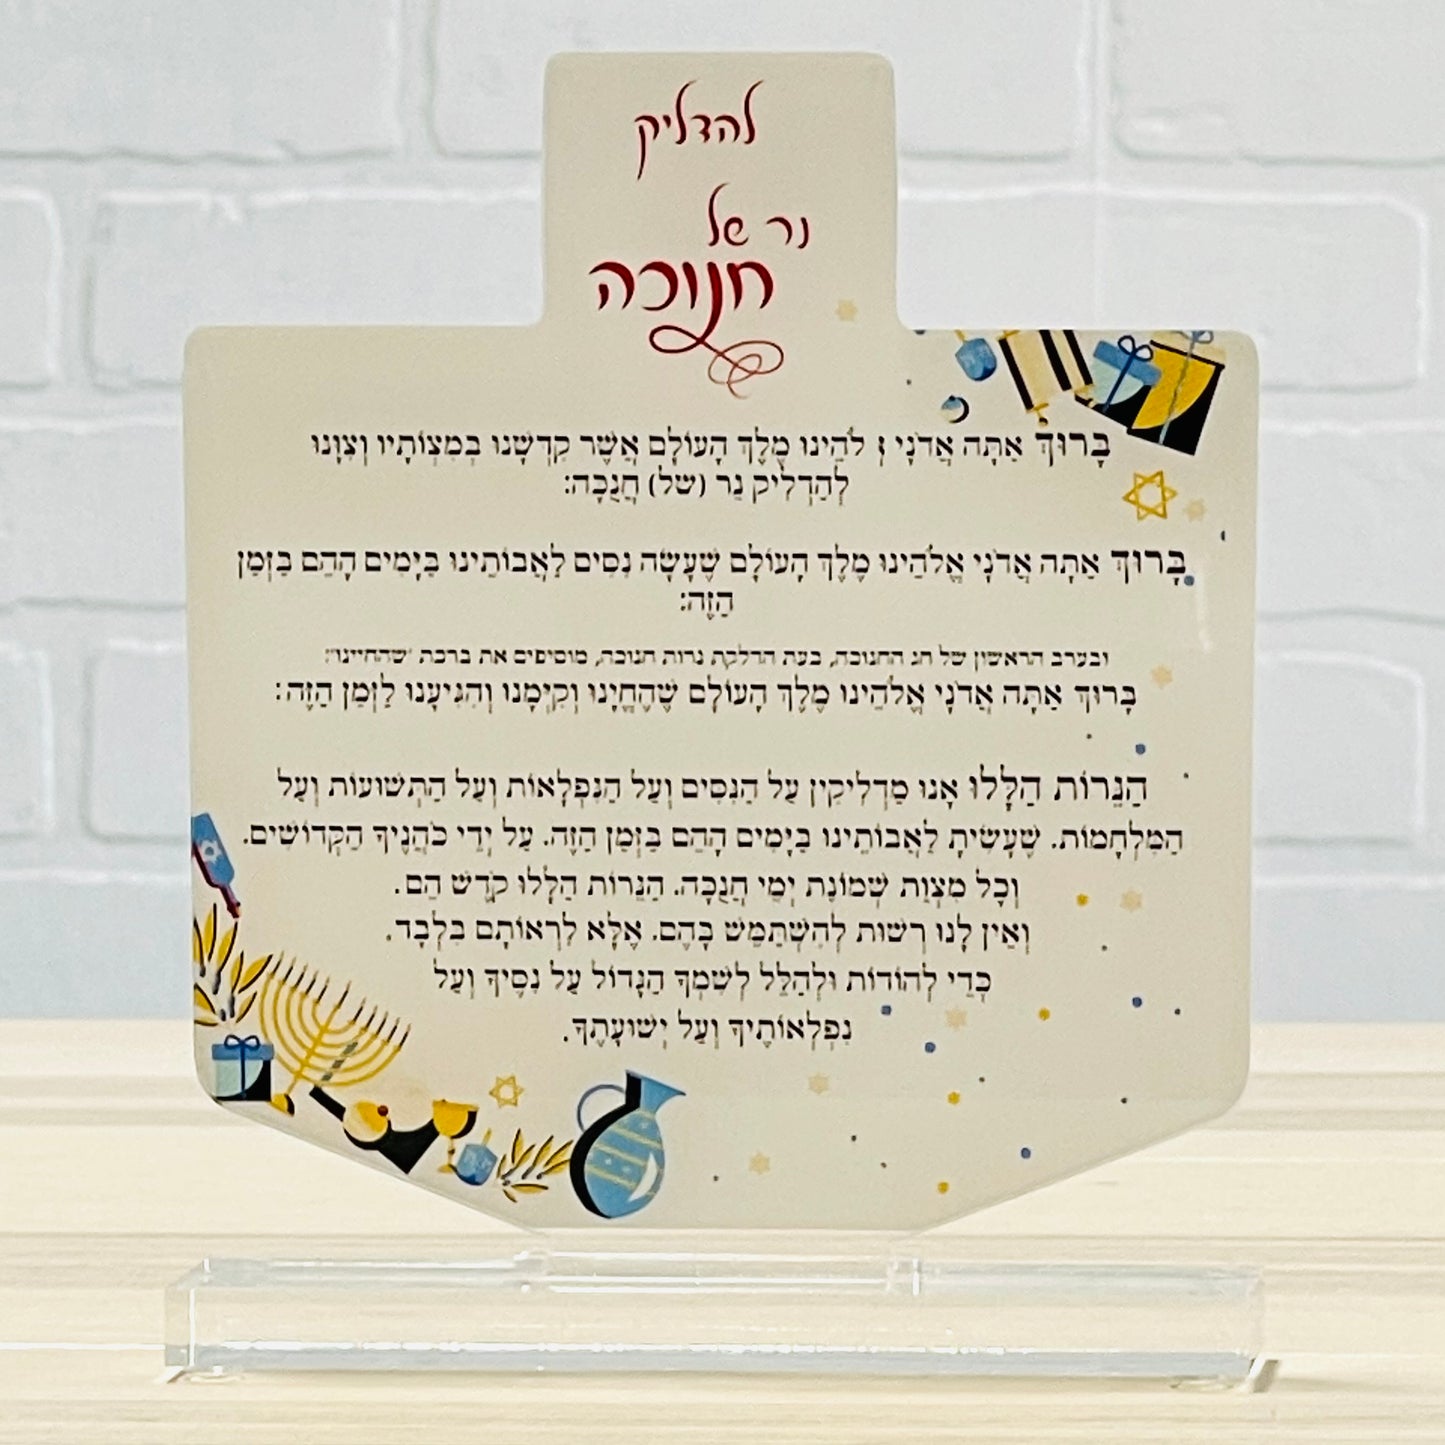 להדליק
נר של
חנוכה
בָּרוּךְ אַתָּה אֲדֹנָי לֹהֵינוּ מֶלֶךְ הָעוֹלָם אֲשֶׁר קִדְּשָׁנוּ בְּמִצְוֹתָיו וְצִוָּנוּ
לְהַדְלִיק נֵר (של) חֲנֻכָּה:
בָּרוּךְ אַתָּה אֲדֹנָי אֱלֹהֵינוּ מֶלֶךְ הָעוֹלָם שֶׁעָשָׂה נִסִּים לַאֲבוֹתֵינוּ בַּיָּמִים הָהֵם בַּזְּמַן
הַזֶּה:
ובערב הראשון של חג החנוכה, בעת הדלקת נרות חנוכה, מוסיפים את ברכת "שהחיינו":
בָּרוּךְ אַתָּה אֲדֹנָי אֱלֹהֵינוּ מֶלֶךְ הָעוֹלָם שֶׁהֶחֱיָנוּ וְקִיְּמָנוּ וְהִגִּיעָנוּ לַזְּמַן הַזֶּה:
הַנֵּרוֹת הַלָּלוּ אָנוּ מַדְלִיקִין עַל הַנִּסִּים וְעַל הַנִּפְלָאוֹת וְעַל הַתְּשׁוּעוֹת וְעַל
הַמִּלְחָמוֹת. שֶׁעָשִׂיתָ לַאֲבוֹתֵינוּ בַּיָּמִים הָהֵם בַּזְּמַן הַזֶּה. עַל יְדֵי כֹּהֲנֶיךָ הַקְּדוֹשִׁים.
וְכָל מִצְוַת שְׁמוֹנַת יְמֵי חֲנֻכָּה. הַנֵּרוֹת הַלָּלוּ קֹדֶשׁ הֵם.
וְאֵין לָנוּ רְשׁוּת לְהִשְׁתַּמֵּשׁ בָּהֶם. אֶלָּא לִרְאוֹתָם בִּלְבָד.
כְּדֵי לְהוֹדוֹת וּלְהַלֵּל לְשִׁמְךָ הַגָּדוֹל עַל נִסֶּיךָ וְעַל
נִפְלְאוֹתֶיךָ וְעַל יְשׁוּעָתֶךָ.